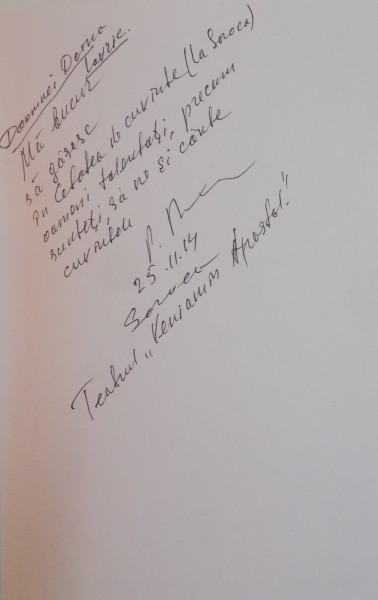 Doamnei Doma
Lavric.
Mă bucur
să găsesc
în Cetatea de cuvinte (la Soroca)
oameni talentați, precum
sunteți, să ne și cânte
cuvintele
25.11.14
Soroca
Teatrul „Veniamin Apostol"